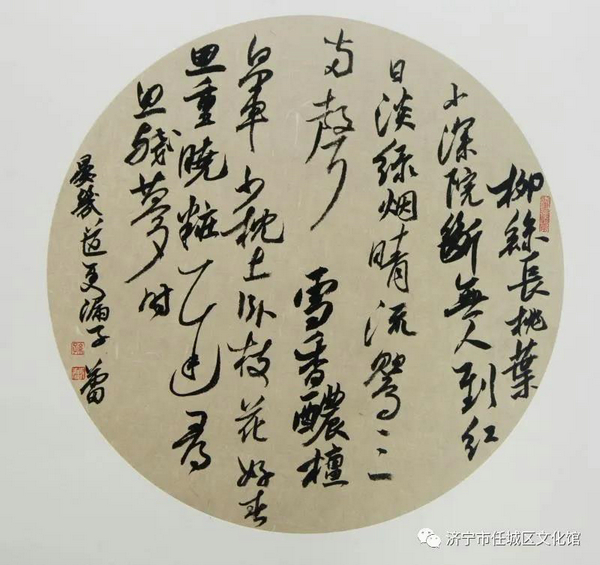 柳絲長桃葉
小深院斷無人到紅
日淡綠烟晴流鶯三
两聲
雪香醲檀
暈少枕上卧枝花好春
思重曉粧遲尋
思殘夢時
晏幾道更漏子 蕾
济宁市任城区文化馆